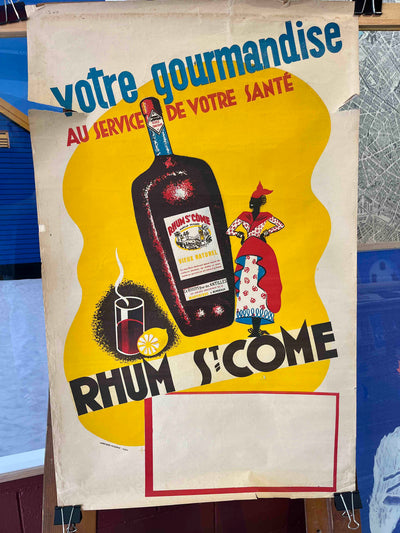 votre gourmandise
AU SERVICE DE VOTRE SANTÉ
RHUM St CÔME
VIEUX NATUREL
RHUM St CÔME